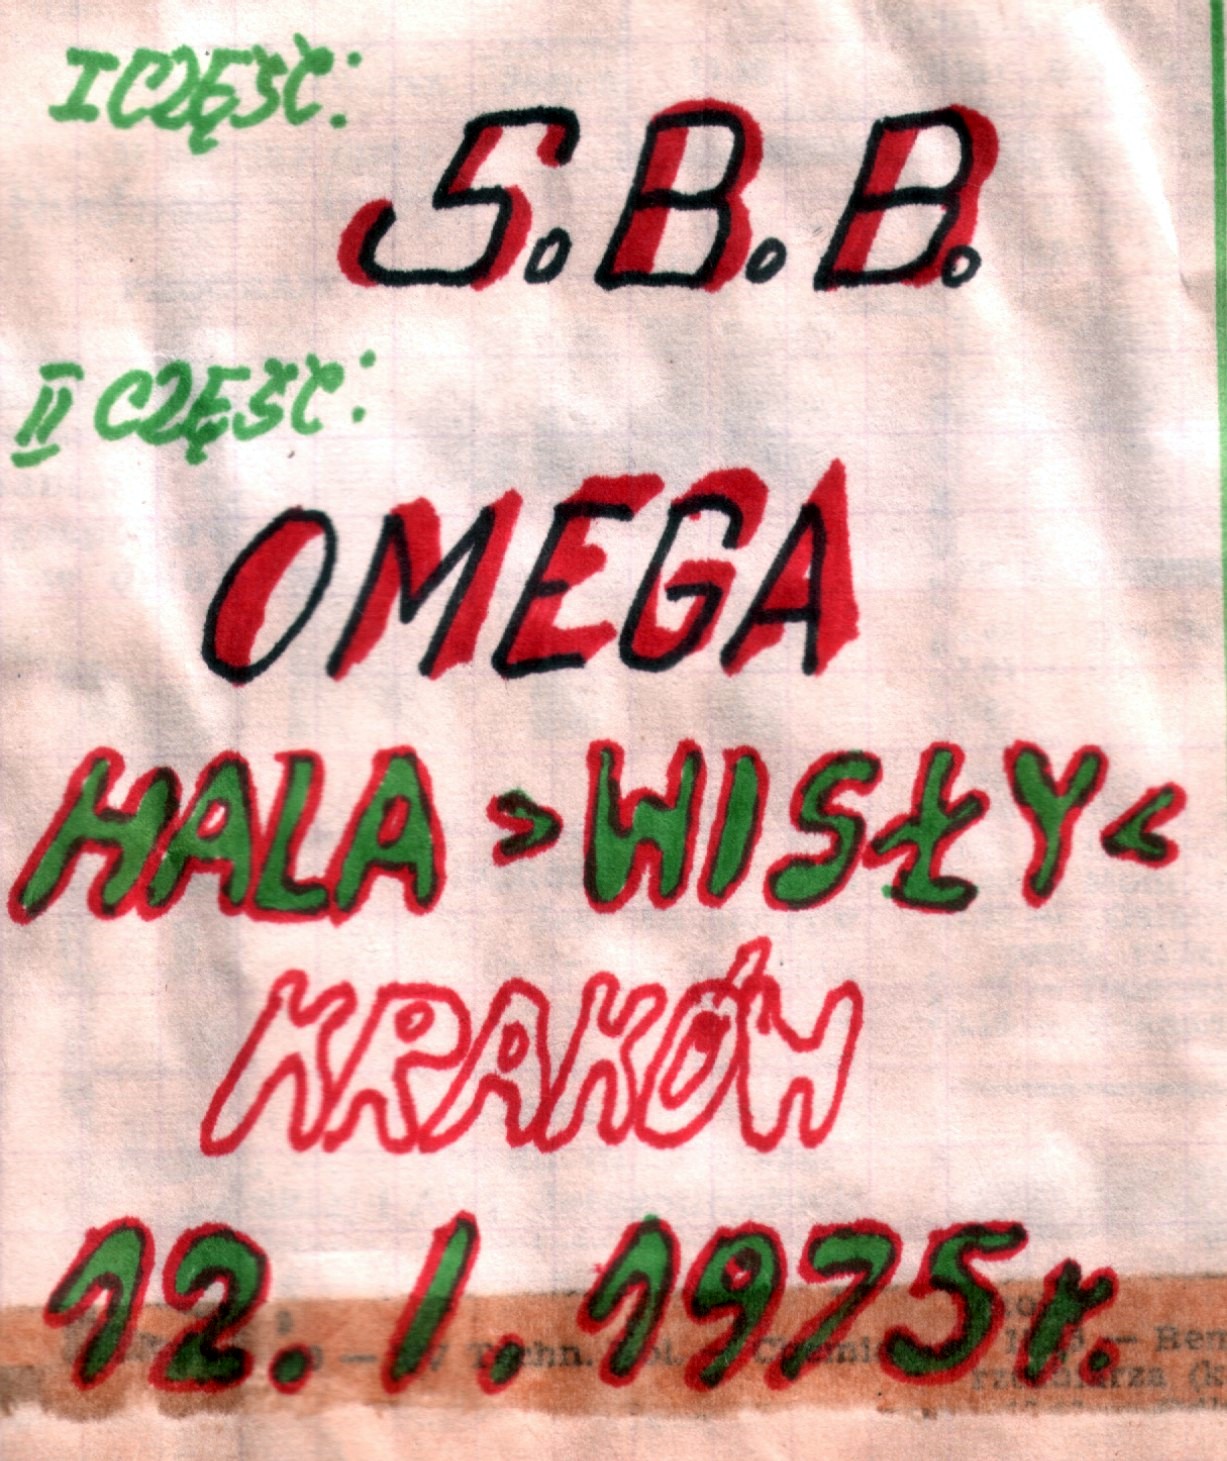 I CZĘŚĆ:
S.B.B.
II CZĘŚĆ:
OMEGA
HALA >WISŁY<
KRAKÓW
12.I.1975r.